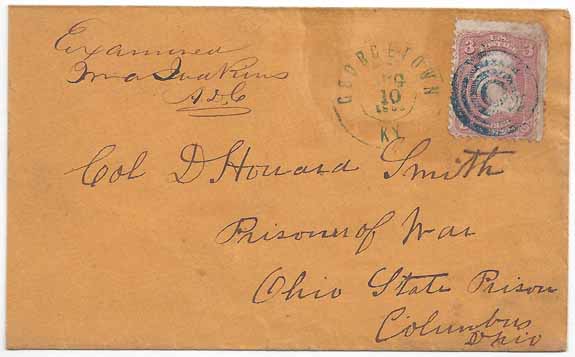 Examined
A.D.C
GEORGETOWN
10
KY.
3 3
Col D Howard Smith
Prisoner of War
Ohio State Prison
Columbus
Ohio